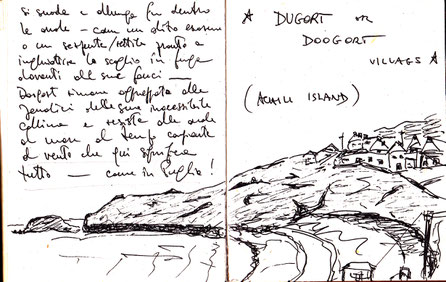 si snoda e allunga fin dentro
le onde – come un dito enorme
o un serpente/rettile pronto a
inghiottire lo scoglio in fuga
davanti alle sue fauci —
Dugort rimane aggrappata alle
pendici della sua inaccessibile
collina e resiste alle onde
al mare al tempo
al vento che qui
tutto — come in Puglia!
DUGORT OR
DOOGORT
VILLAGS
(ACHILL ISLAND)